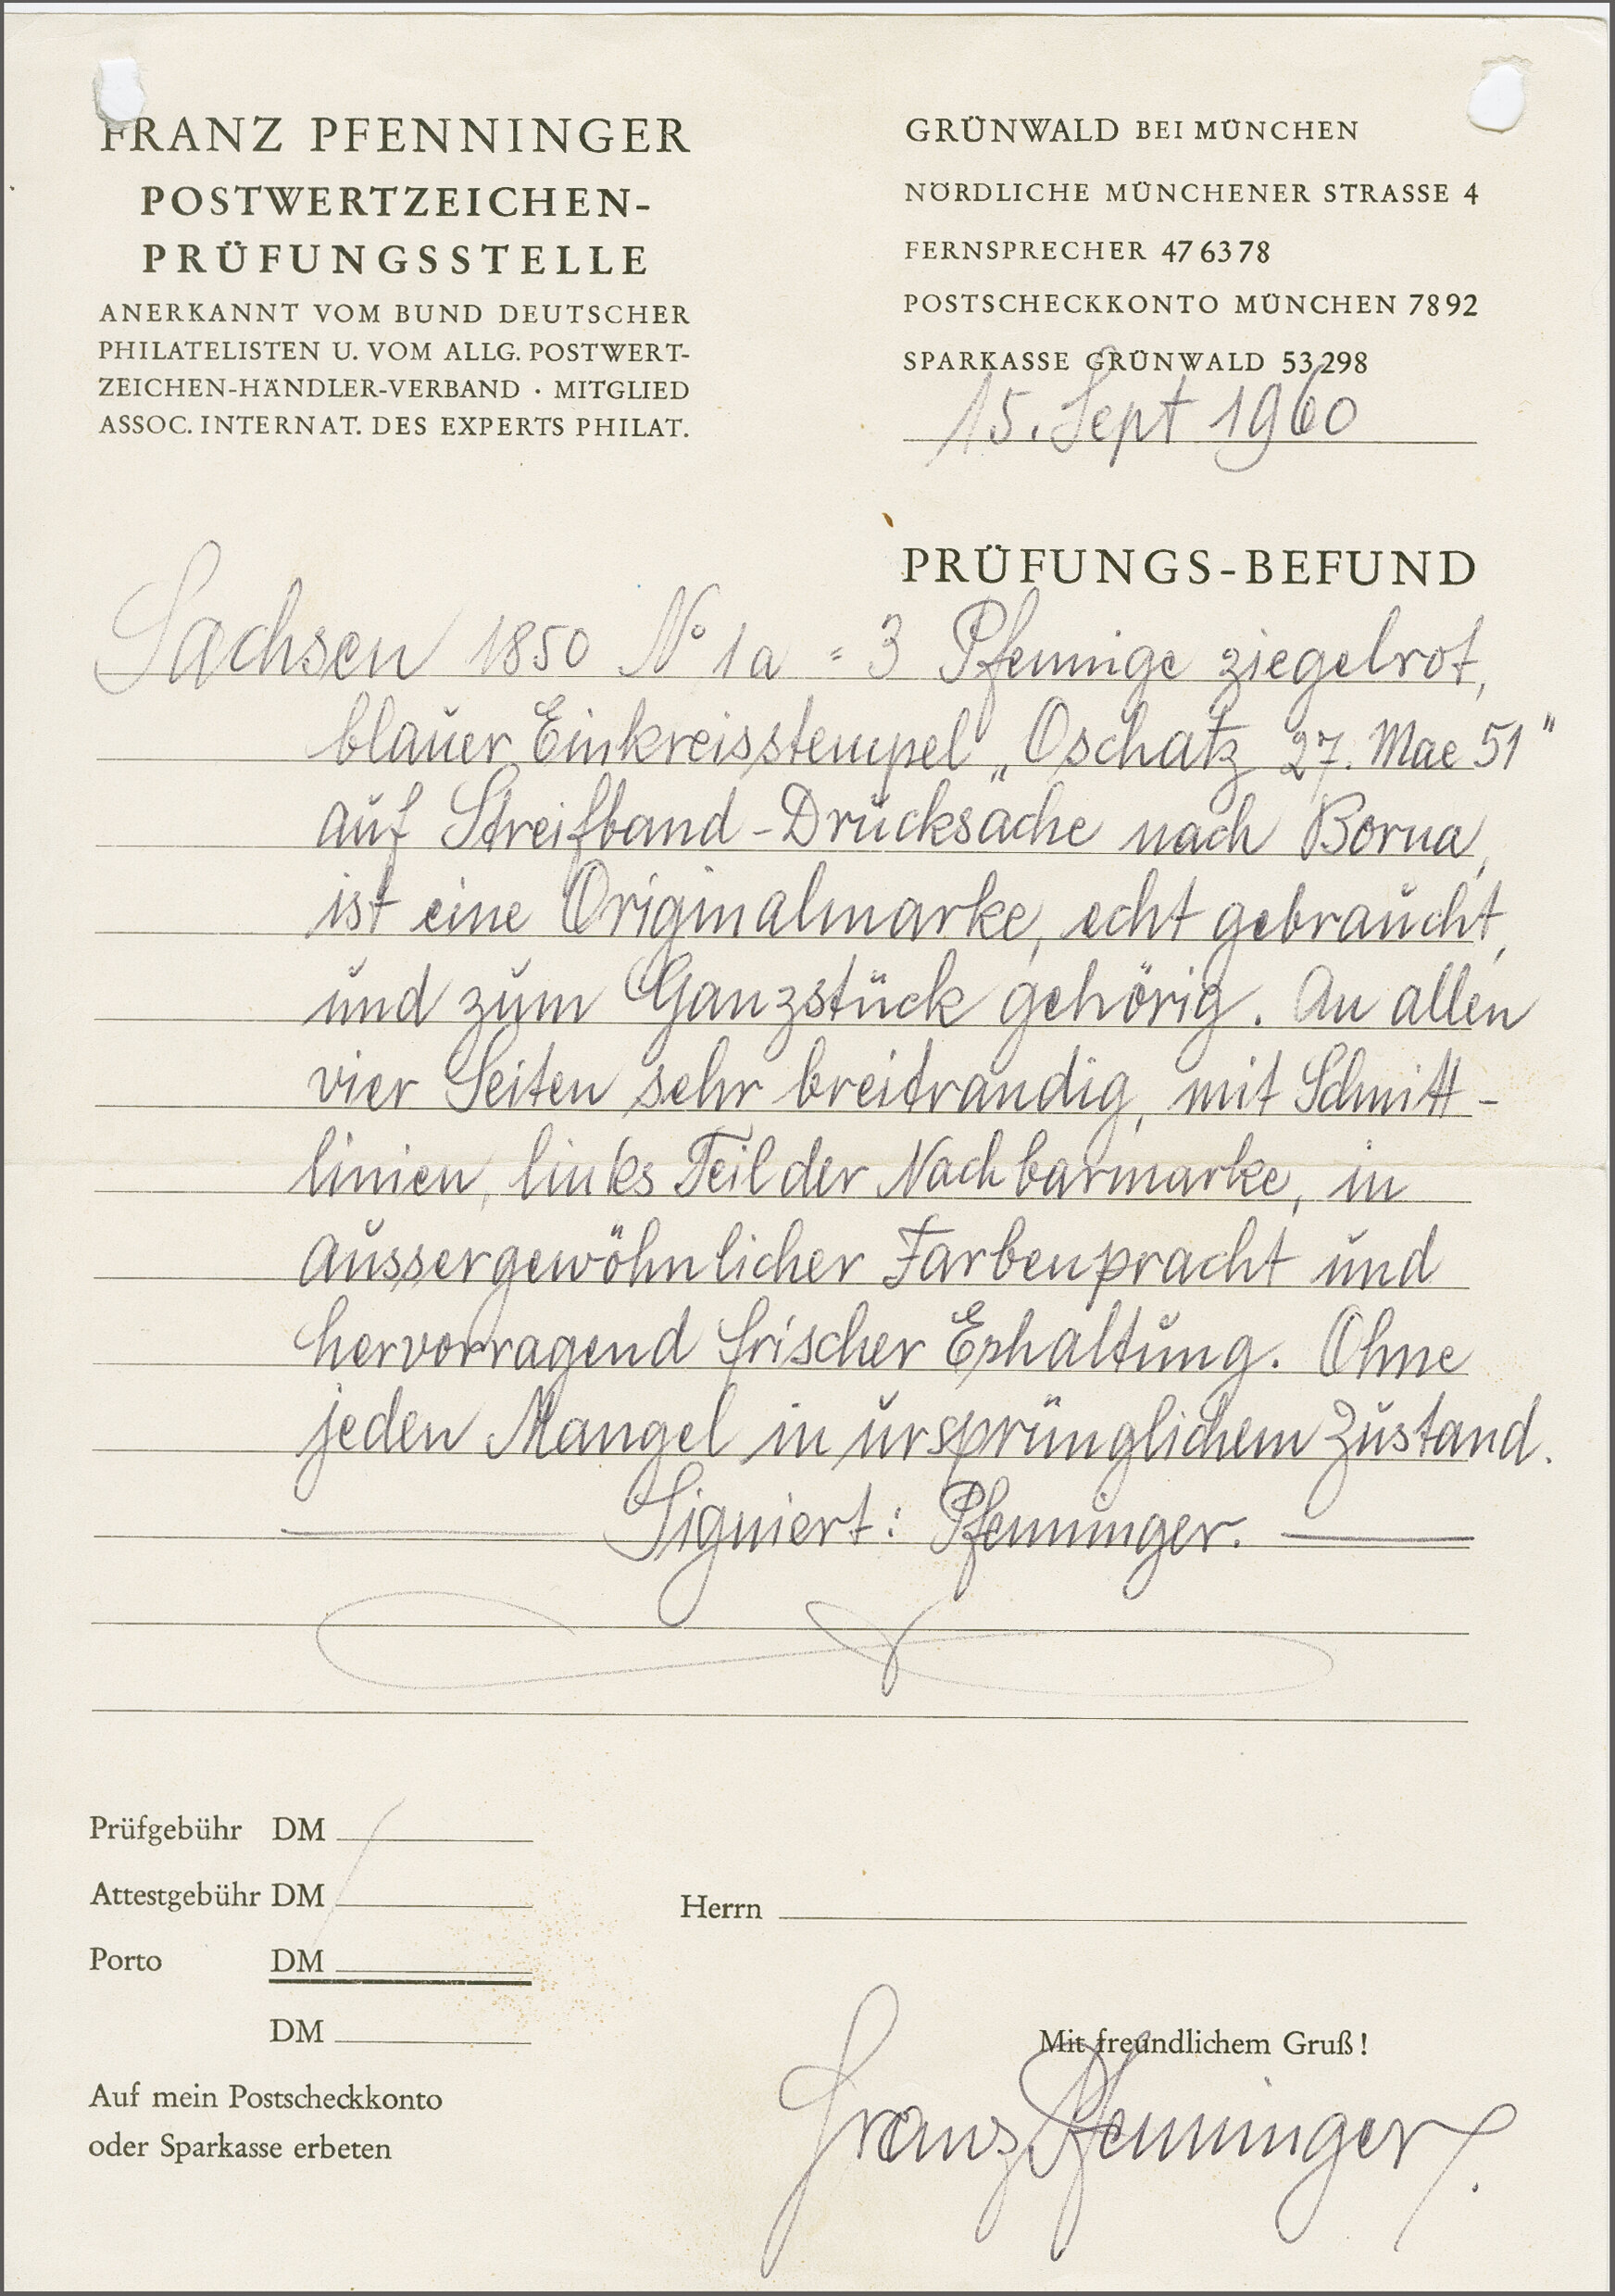 FRANZ PFENNINGER
POSTWERTZEICHEN-
PRÜFUNGSSTELLE
ANERKANNT VOM BUND DEUTSCHER
PHILATELISTEN U. VOM ALLG. POSTWERT-
ZEICHEN-HÄNDLER-VERBAND · MITGLIED
ASSOC. INTERNAT. DES EXPERTS PHILAT.
GRÜNWALD BEI MÜNCHEN
NÖRDLICHE MÜNCHENER STRASSE 4
FERNSPRECHER 476378
POSTSCHECKKONTO MÜNCHEN 7892
SPARKASSE GRÜNWALD 53298
15. Sept 1960
PRÜFUNGS-BEFUND
Sachsen 1850 No 1a = 3 Pfennige ziegelrot,
blauer Einkreisstempel „Oschatz 27. Mae 51"
auf Streifband-Drucksache nach Borna,
ist eine Originalmarke, echt gebraucht,
und zum Ganzstück gehörig. An allen
vier Seiten sehr breitrandig, mit Schnitt-
linien, links Teil der Nachbarmarke, in
aussergewöhnlicher Farbenpracht und
hervorragend frischer Erhaltung. Ohne
jeden Mangel in ursprünglichem Zustand.
Signiert: Pfenninger.
Prüfgebühr DM
Attestgebühr DM
Porto DM
DM
Auf mein Postscheckkonto
oder Sparkasse erbeten
Herrn
Mit freundlichem Gruß!
Franz Pfenninger